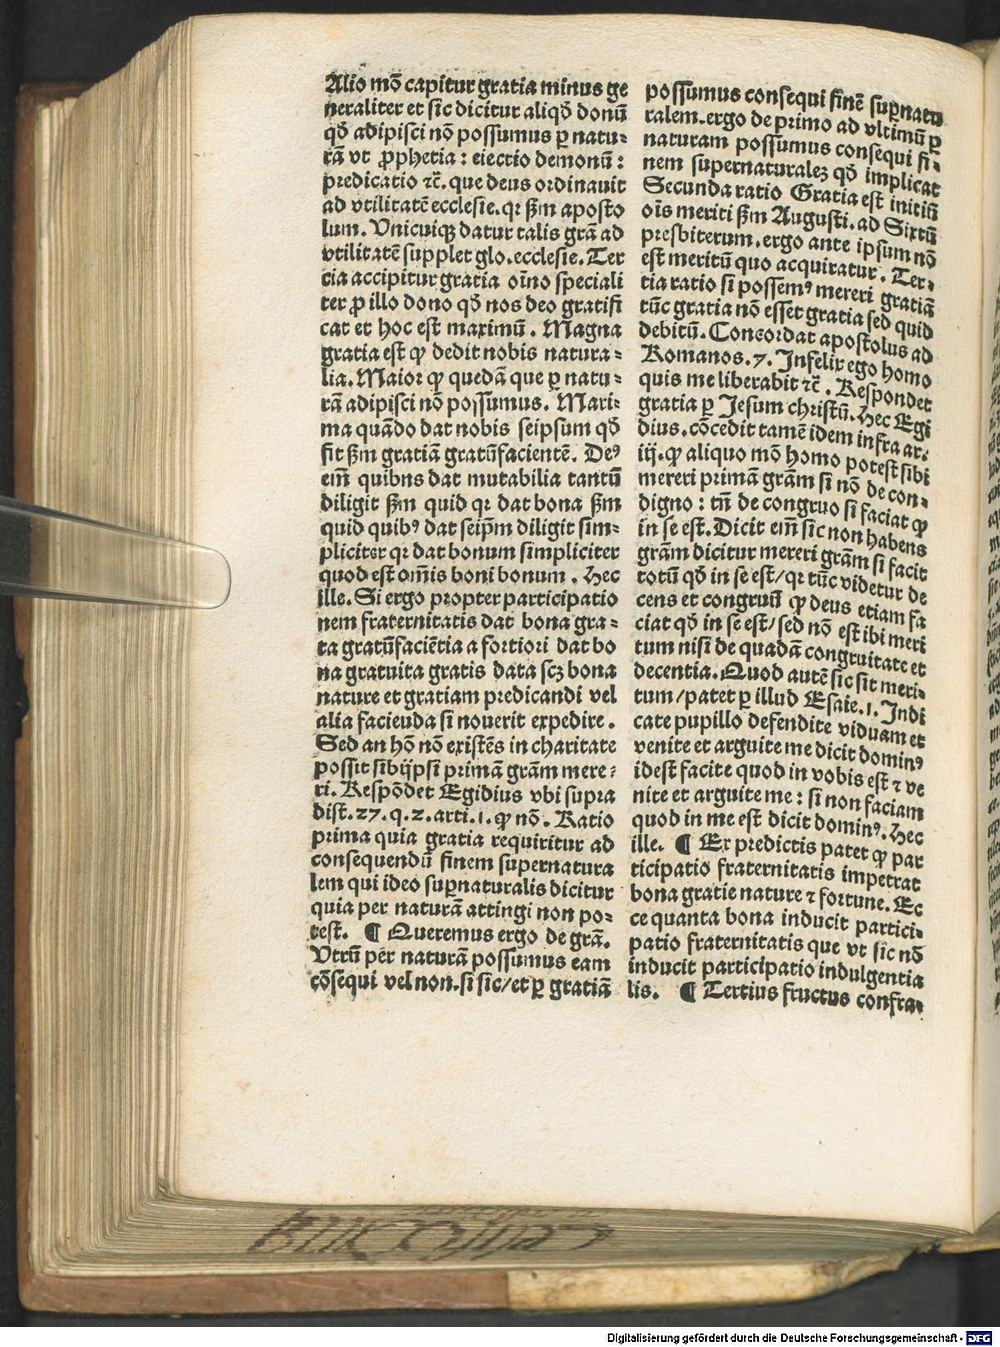 Alio mō capitur gratia minus ge
neraliter et sic dicitur aliqḋ donū
qḋ adipisci nō possumus ꝑ natu⸗
rā vt ꝓphetia : eiectio demonū :
predicatio ⁊c̄. que deus ordinauit
ad vtilitatē ecclesie. qꝛ ẜm aposto
lum. Vnicuiqꝫ datur talis grā ad
vtilitatē supplet glo. ecclesie. Ter
cia accipitur gratia oīno speciali
ter ꝓ illo dono qḋ nos deo gratifi
cat et hoc est maximū. Magna
gratia est ꝙ dedit nobis natura⸗
lia. Maior ꝙ quedā que ꝑ natu⸗
rā adipisci nō possumus. Maxi⸗
ma quādo dat nobis seipsum qḋ
fit ẜm gratiā gratūfacientē. Deꝰ
em̄ quibns dat mutabilia tantū
diligit ẜm quid qꝛ dat bona ẜm
quid quibꝰ dat seip̄m diligit sim⸗
pliciter qꝛ dat bonum simpliciter
quod est om̄is boni bonum. Hec
ille. Si ergo propter participatio
nem fraternitatis dat bona gra⸗
ta gratūfaciētia a fortiori dat bo
na gratuita gratis data scꝫ bona
nature et gratiam predicandi vel
alia facieuda si nouerit expedire.
Sed an hō nō existēs in charitate
possit sibijpsi primā grām mere⸗
ri. Respōdet Egidius vbi supra
dist. 27. q. 2. arti. 1. ꝙ nō. Ratio
prima quia gratia requiritur ad
consequendū finem supernatura
lem qui ideo suꝑnaturalis dicitur
quia per naturā attingi non po⸗
test. ¶ Queremus ergo de grā.
Vtrū per naturā possumus eam
cōsequi vel non. si sic/et ꝑ gratiā
possumus consequi finē suꝑnatu
ralem. ergo de primo ad vltimū ꝑ
naturam possumus consequi fi⸗
nem supernaturaleꝫ qḋ implicat
Secunda ratio Gratia est initiū
oīs meriti ẜm Augusti. ad Sixtū
presbiterum. ergo ante ipsum nō
est meritū quo acquiratur. Ter⸗
tia ratio si possemꝰ mereri gratiā
tūc gratia nō esset gratia sed quid
debitū. Concordat apostolus ad
Romanos. 7. Infelix ego homo
quis me liberabit ⁊c̄. Respondet
gratia ꝑ Jesum christū. Hec Egi
dius. cōcedit tamē idem infra ar.
iij. ꝙ aliquo mō homo potest sibi
mereri primā grām si nō de con⸗
digno : tn̄ de congruo si faciat ꝙ
in se est. Dicit em̄ sic non habens
grām dicitur mereri grām si facit
totū qḋ in se est/qꝛ tūc videtur de
cens et congruū ꝙ deus etiam fa
ciat qḋ in se est/sed nō est ibi meri
tum nisi de quadā congruitate et
decentia. Quod autē sic sit meri⸗
tum/patet ꝑ illud Esaie. 1. Indi
cate pupillo defendite viduam et
venite et arguite me dicit dominꝰ
idest facite quod in vobis est ⁊ ve
nite et arguite me : si non faciam
quod in me est dicit dominꝰ. Hec
ille. ¶ Ex predictis patet ꝙ par
ticipatio fraternitatis impetrat
bona gratie nature ⁊ fortune. Ec
ce quanta bona inducit partici⸗
patio fraternitatis que vt sic nō
inducit participatio indulgentia
lis. ¶ Tertius fructus confra⸗
Digitalisierung gefördert durch die Deutsche Forschungsgemeinschaft - DFG